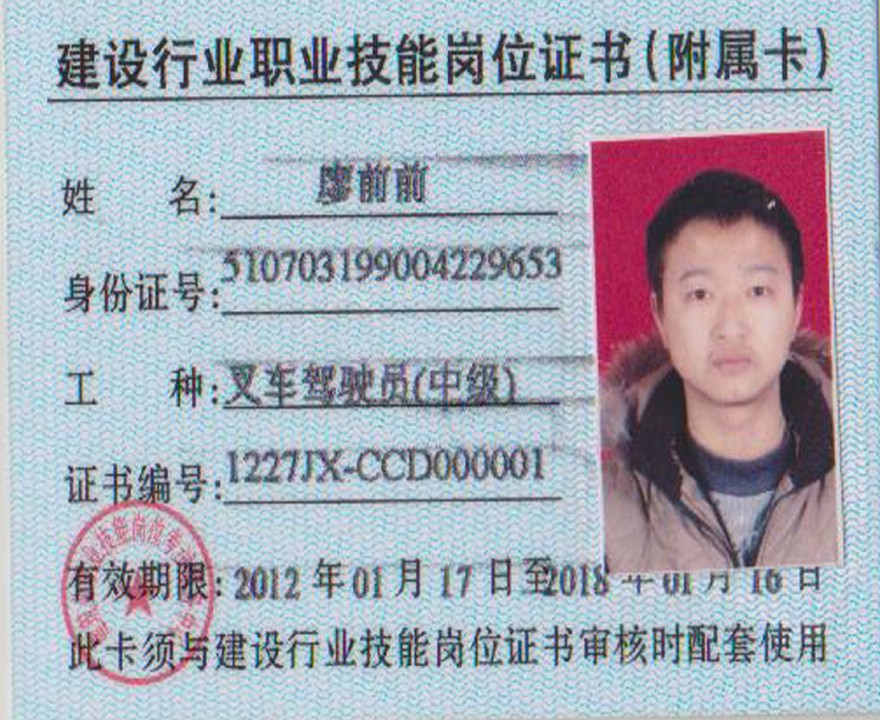 建设行业职业技能岗位证书(附属卡)
姓 名: 廖前前
身份证号: 510703199004229653
工 种: 叉车驾驶员(中级)
证书编号: 1227JX-CCD000001
有效期限: 2012 年 01 月 17 日至2018 年 01 月 16 日
此卡须与建设行业技能岗位证书审核时配套使用